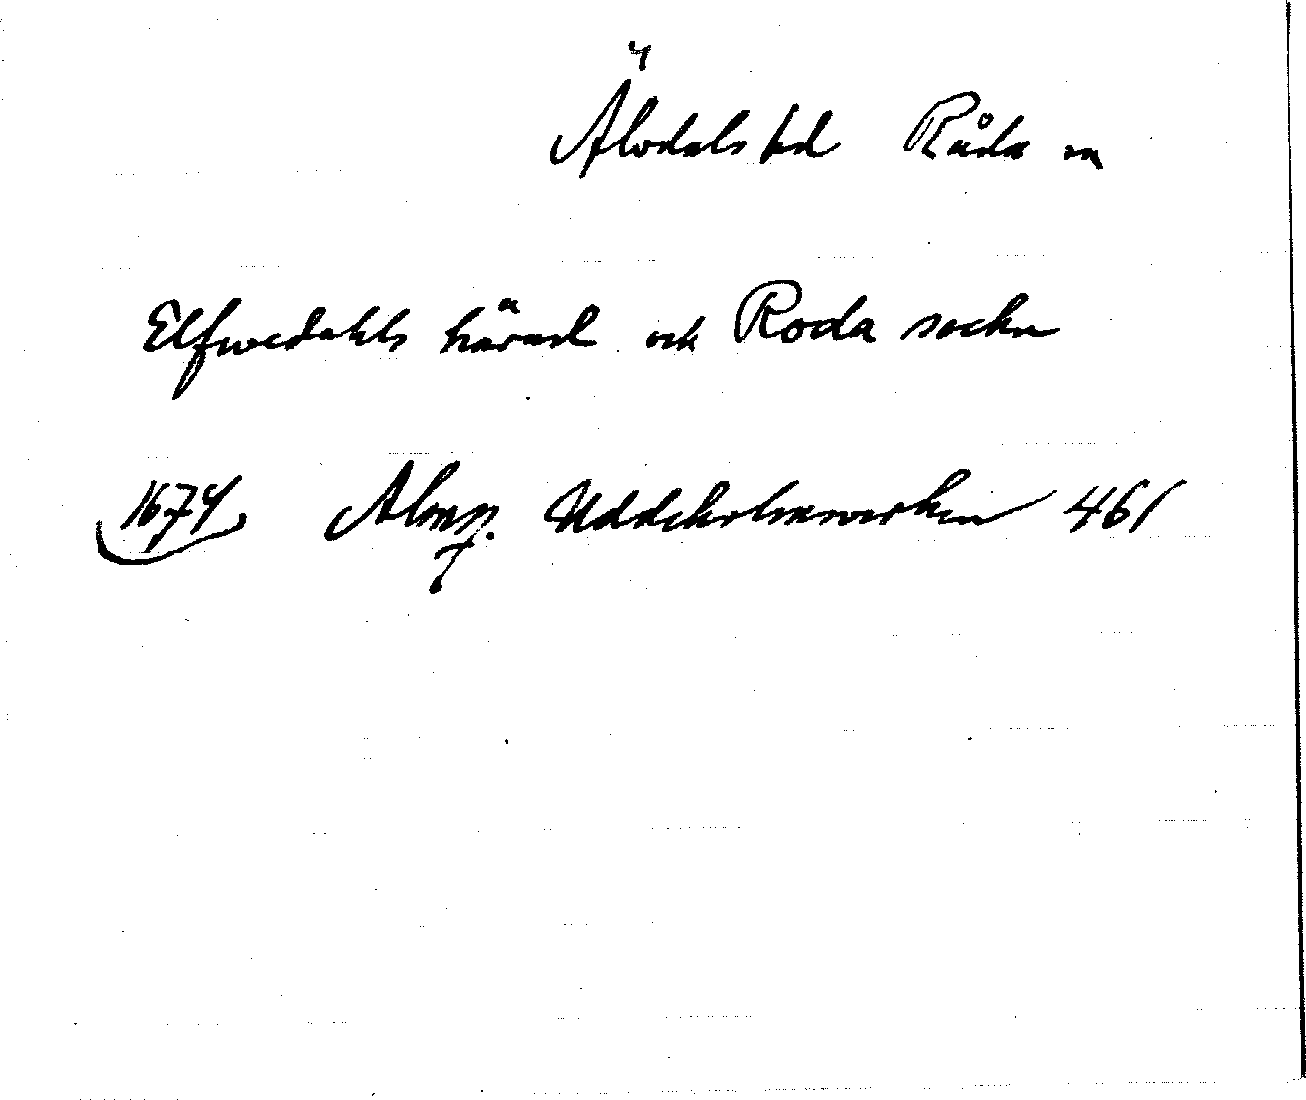 Älvdals hd Råda sn
Elfwedahls härad och Roda sockn
1674 Almq. Uddeholmswerken 461